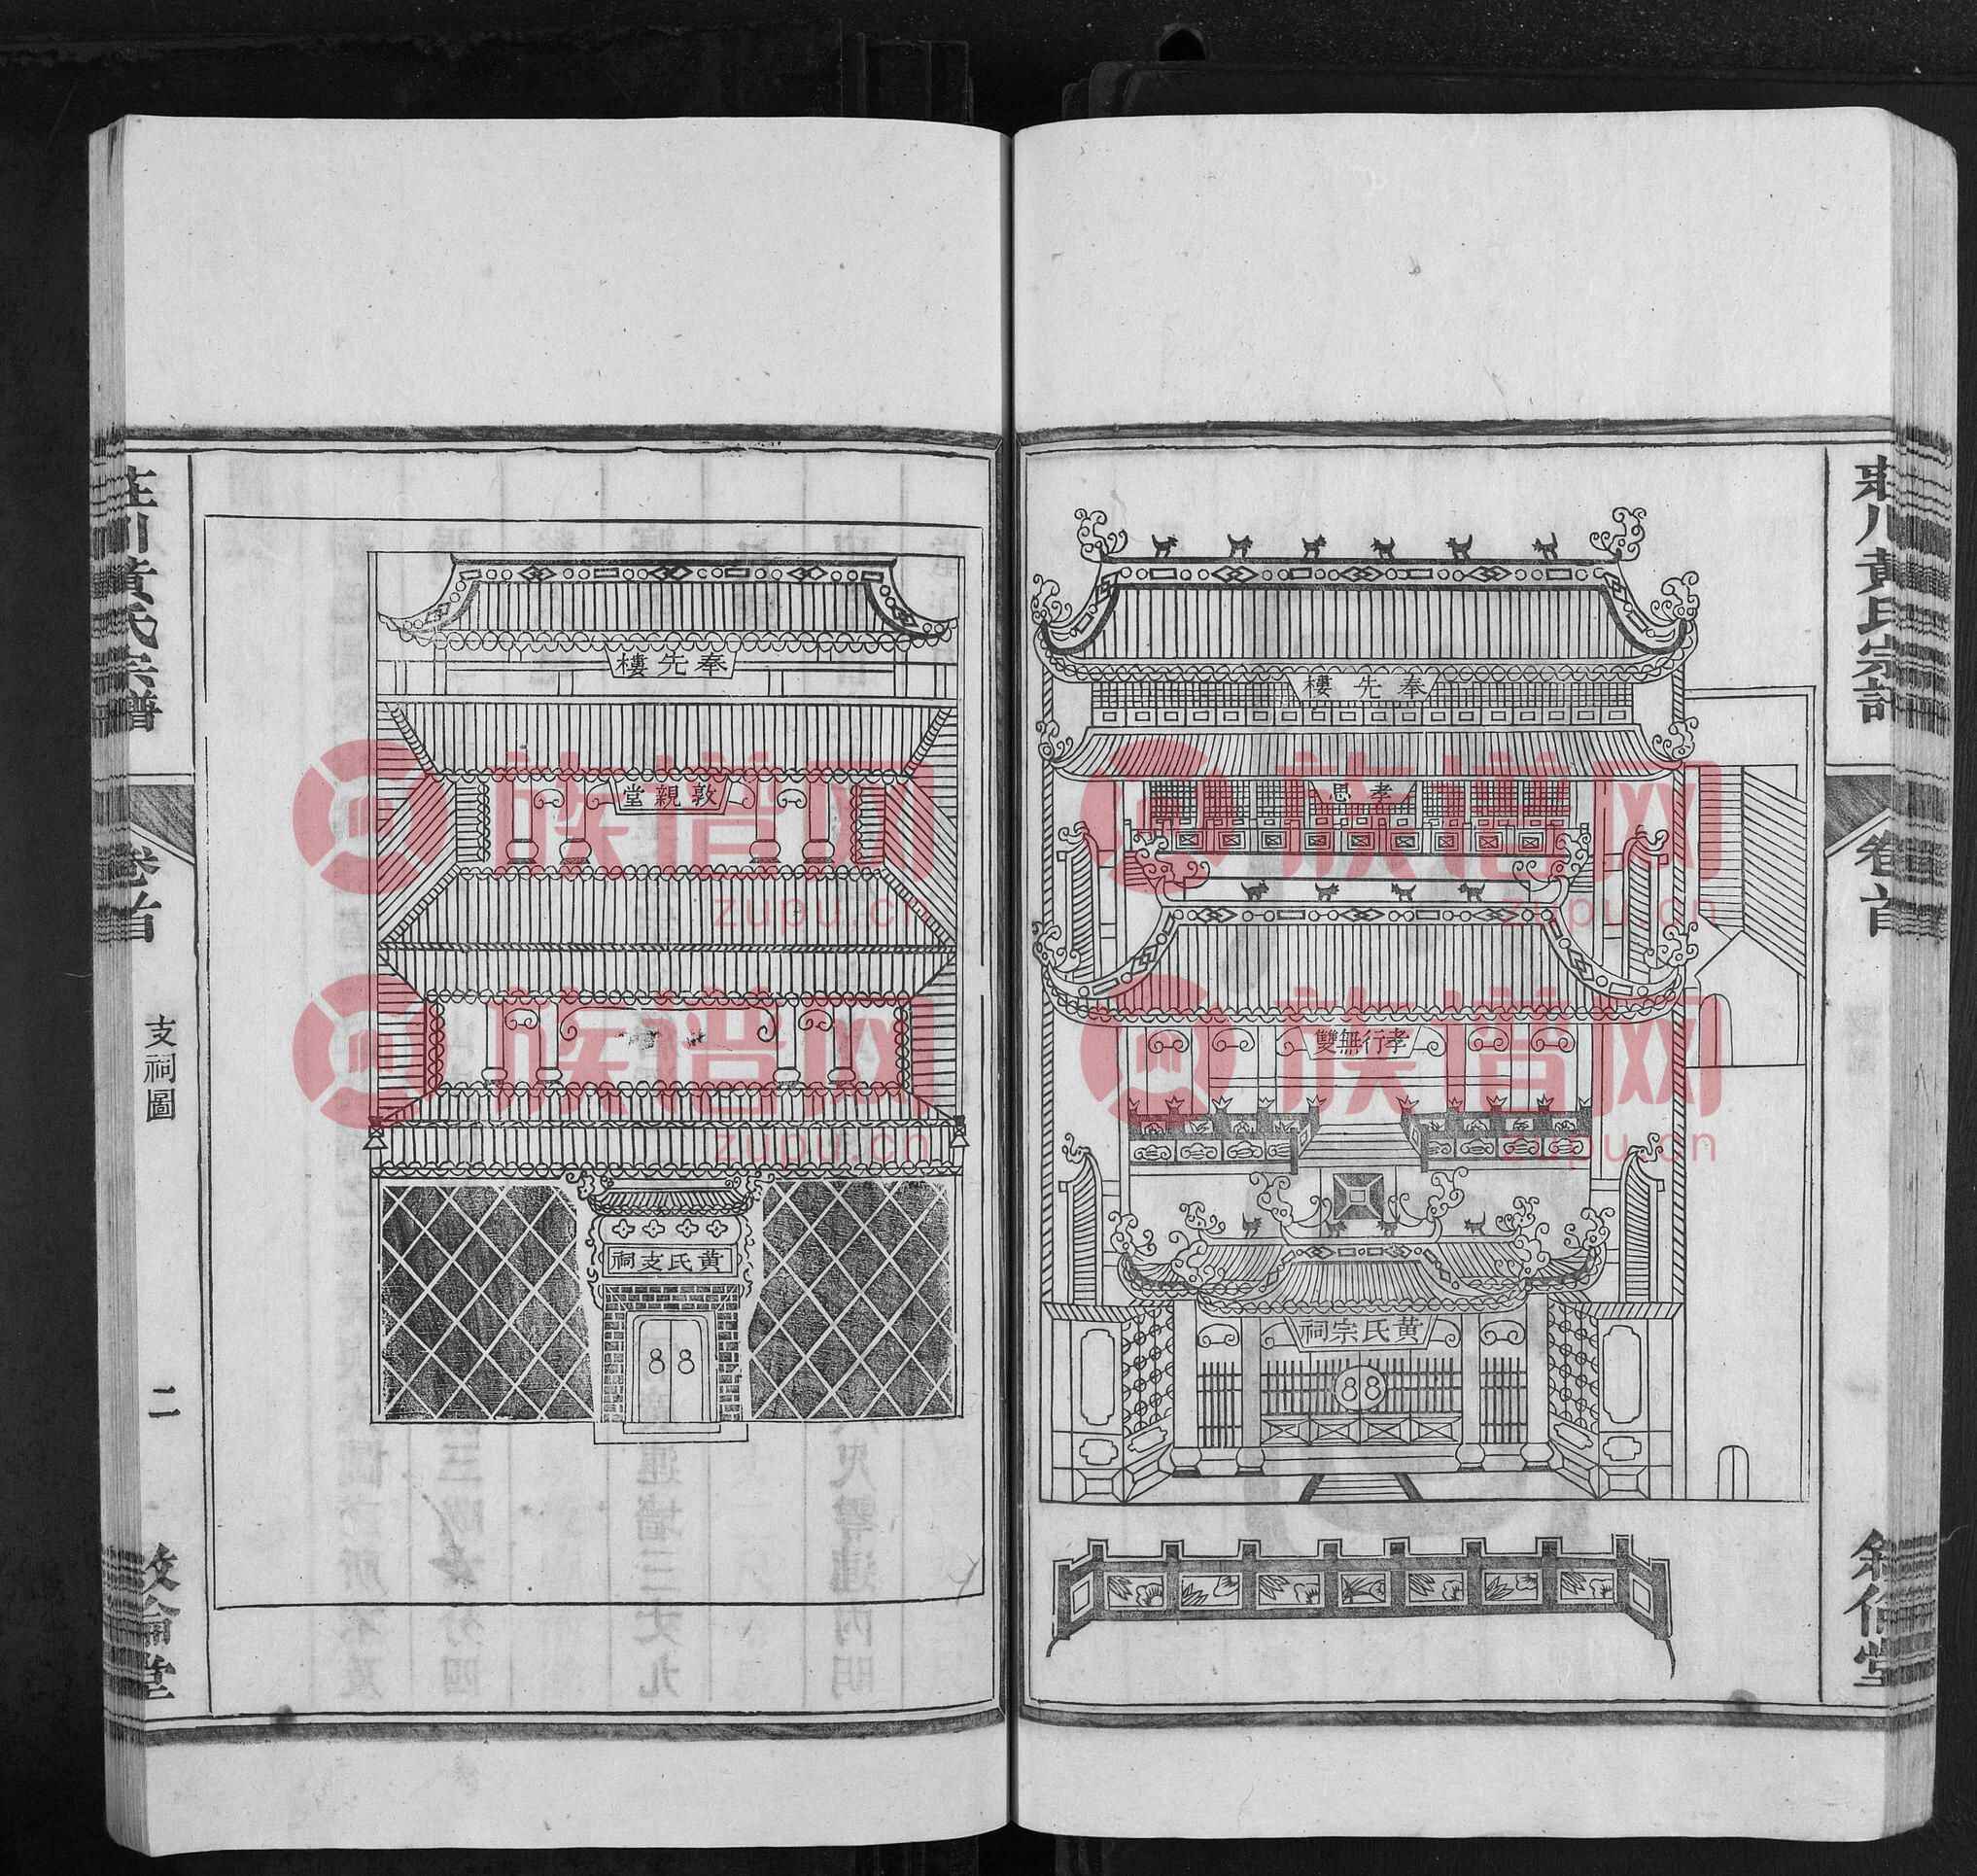 奉先樓
孝思
孝行無雙
黃氏宗祠
莊川黃氏宗譜
卷首
支祠圖
二
敘倫堂
奉先樓
敦親堂
黃氏支祠
族谱网
zupu.cn
族谱网
zupu.cn
族谱网
zupu.cn
族谱网
zupu.cn